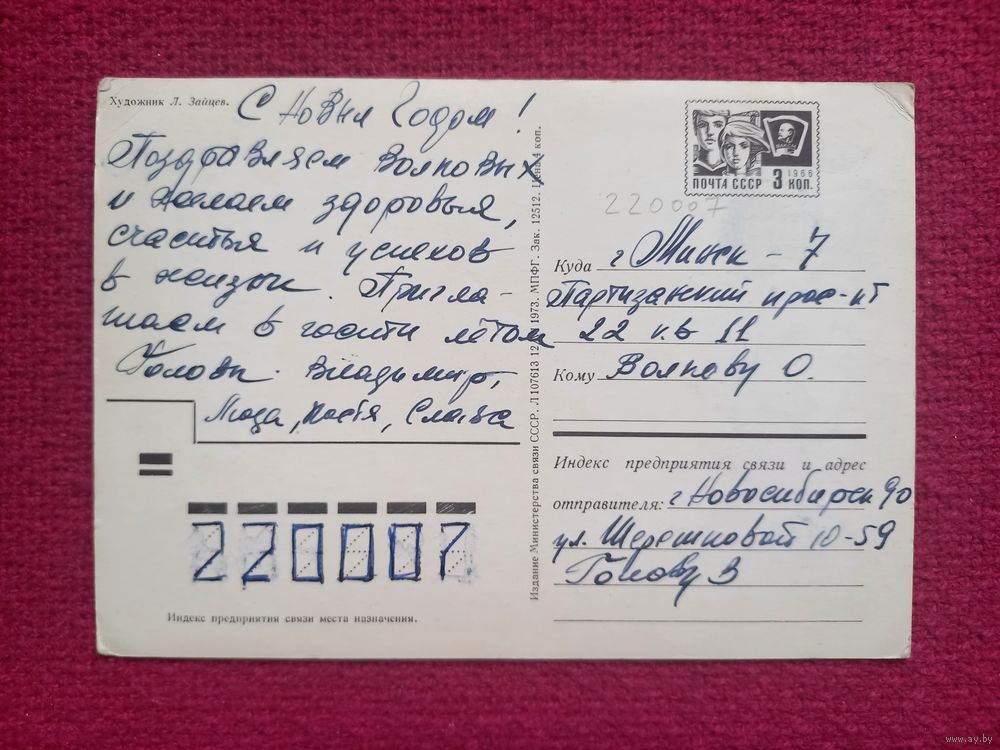 Художник Л. Зайцев.
С Новым Годом!
Поздравляем Волковых
и желаем здоровья,
счастья и успехов
в жизни. Пригла-
шаем в гости летом
Головы. Владимир,
Люда, Костя, Слава
Индекс предприятия связи места назначения.
220007
Издание Министерства связи СССР. Л 107613 12 1973. МПФГ. Зак. 12512. Цена 4 коп.
ПОЧТА СССР 3 КОП. 1966
220007
Куда г Минск - 7
Партизанский прос-кт
22 кв 11
Кому Волкову О.
Индекс предприятия связи и адрес
отправителя: г Новосибирск 90
ул. Терешковой 10-59
Голову В
www.ay.by